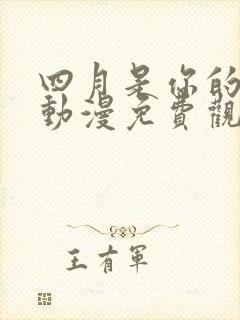 四月是你的
動漫免費觀
王有軍